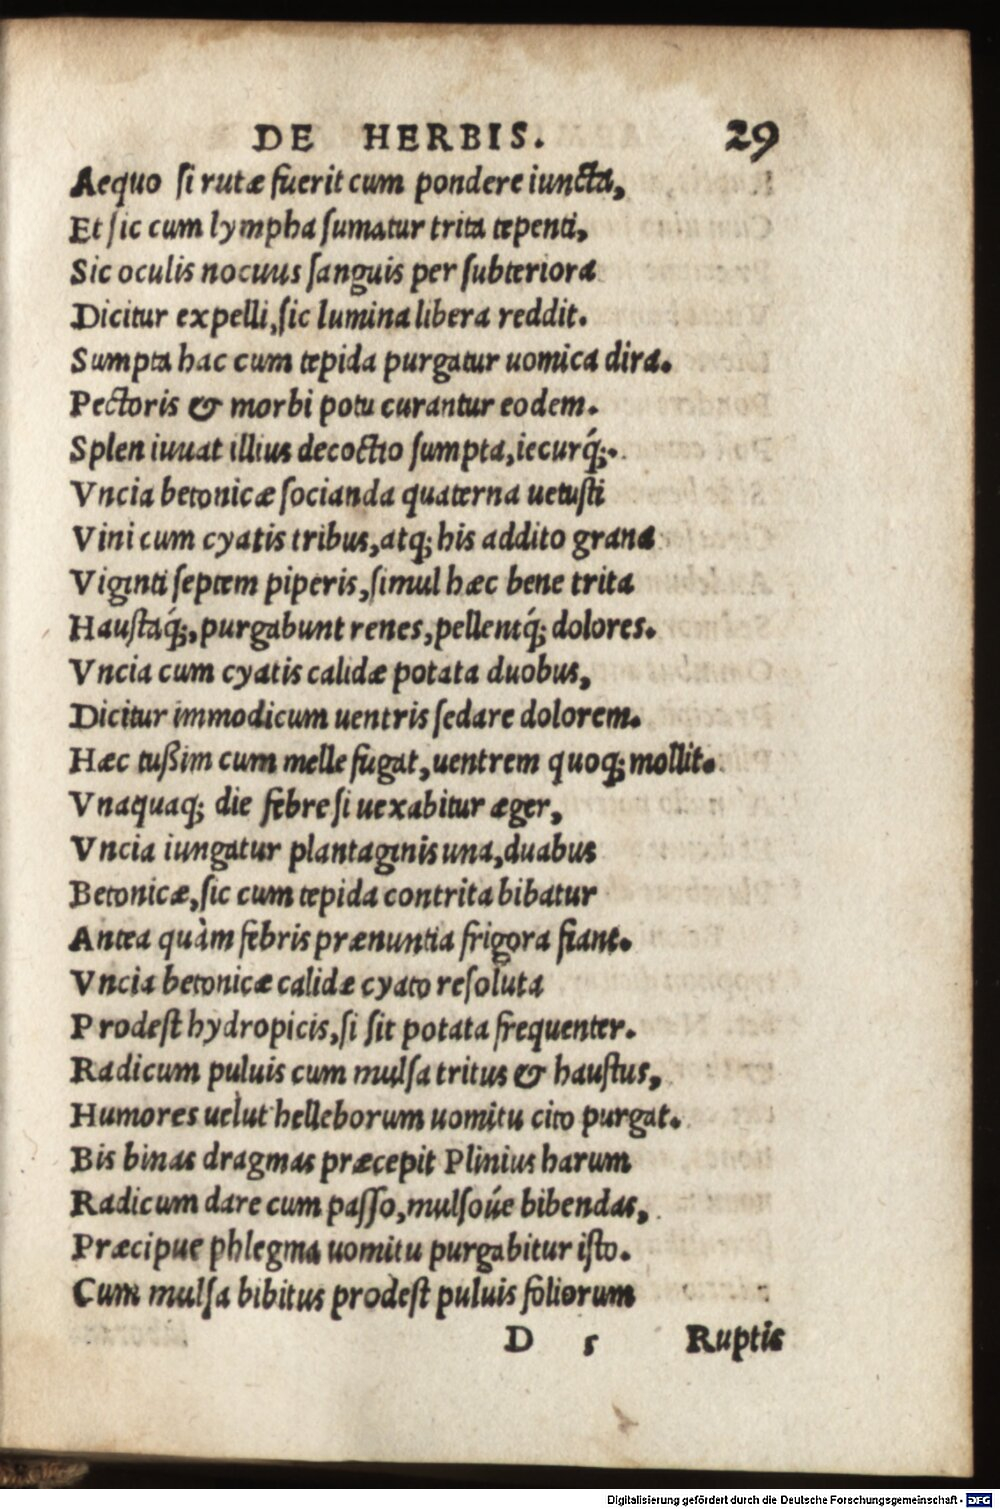 DE HERBIS. 29
Aequo si rutæ fuerit cum pondere iuncta,
Et sic cum lympha sumatur trita tepenti,
Sic oculis nocuus sanguis per subteriora
Dicitur expelli, sic lumina libera reddit.
Sumpta hac cum tepida purgatur uomica dira.
Pectoris & morbi potu curantur eodem.
Splen iuuat illius decoctio sumpta, iecurq́;.
Vncia betonicæ socianda quaterna uetusti
Vini cum cyatis tribus, atq; his addito grana
Viginti septem piperis, simul hæc bene trita
Haustaq́;, purgabunt renes, pellentq́; dolores.
Vncia cum cyatis calidæ potata duobus,
Dicitur immodicum uentris sedare dolorem.
Hæc tußim cum melle fugat, uentrem quoq; mollit.
Vnaquaq; die febre si uexabitur æger,
Vncia iungatur plantaginis una, duabus
Betonicæ, sic cum tepida contrita bibatur
Antea quàm febris prænuntia frigora fiant.
Vncia betonicæ calidæ cyato resoluta
Prodest hydropicis, si sit potata frequenter.
Radicum puluis cum mulsa tritus & haustus,
Humores uelut helleborum uomitu cito purgat.
Bis binas dragmas præcepit Plinius harum
Radicum dare cum passo, mulsoúe bibendas,
Præcipue phlegma uomitu purgabitur isto.
Cum mulsa bibitus prodest puluis foliorum
D 5 Ruptis
Digitalisierung gefördert durch die Deutsche Forschungsgemeinschaft - DFG